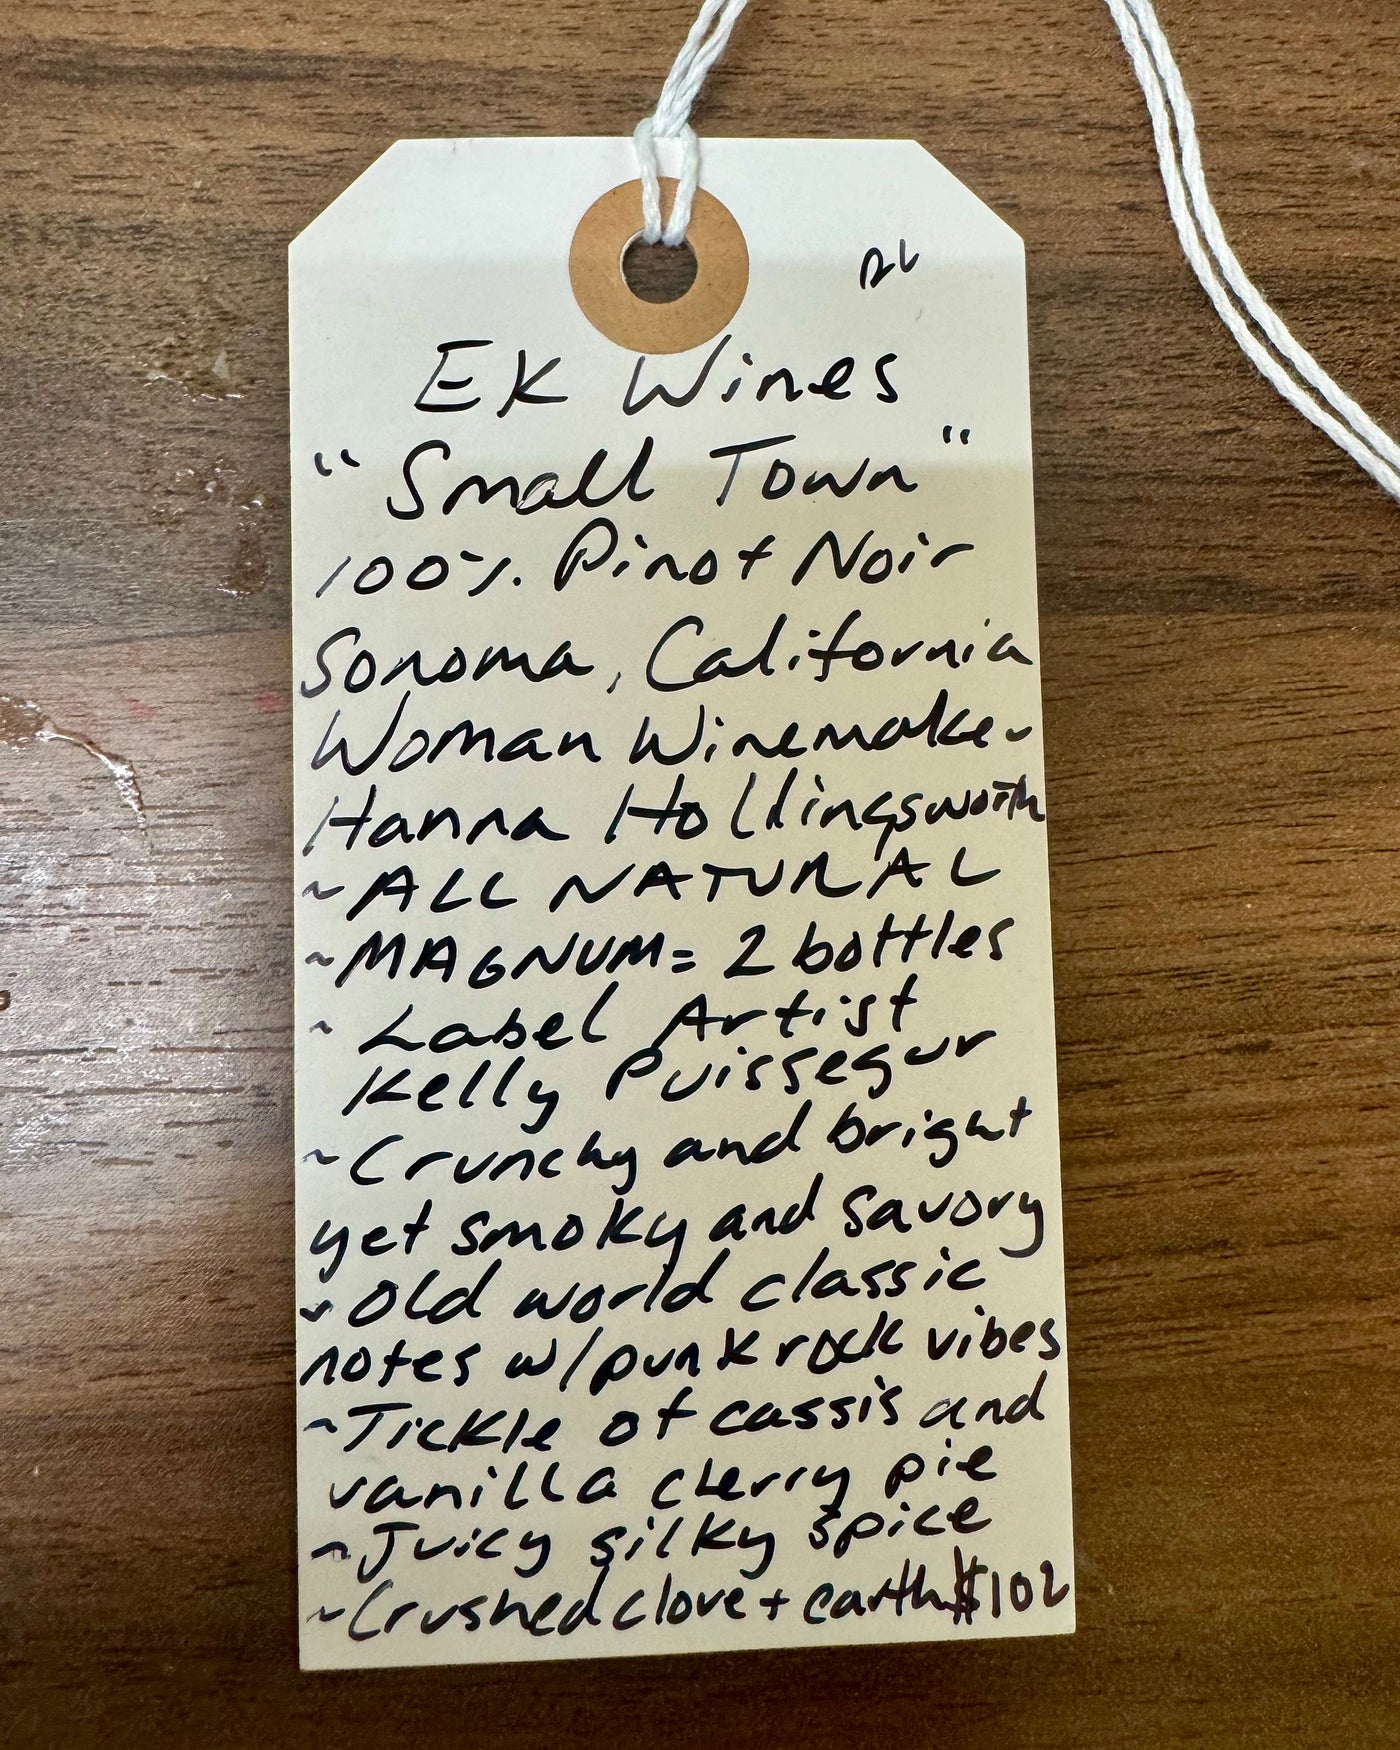 EK Wines
"Small Town"
100% Pinot Noir
Sonoma, California
Woman Winemaker
Hanna Hollingsworth
~ALL NATURAL
~MAGNUM = 2 bottles
~ Label Artist
Kelly Puissegur
~Crunchy and bright
yet smoky and savory
~Old world classic
notes w/punk rock vibes
~Tickle of cassis and
vanilla cherry pie
~Juicy silky spice
~Crushed clove + earth $102